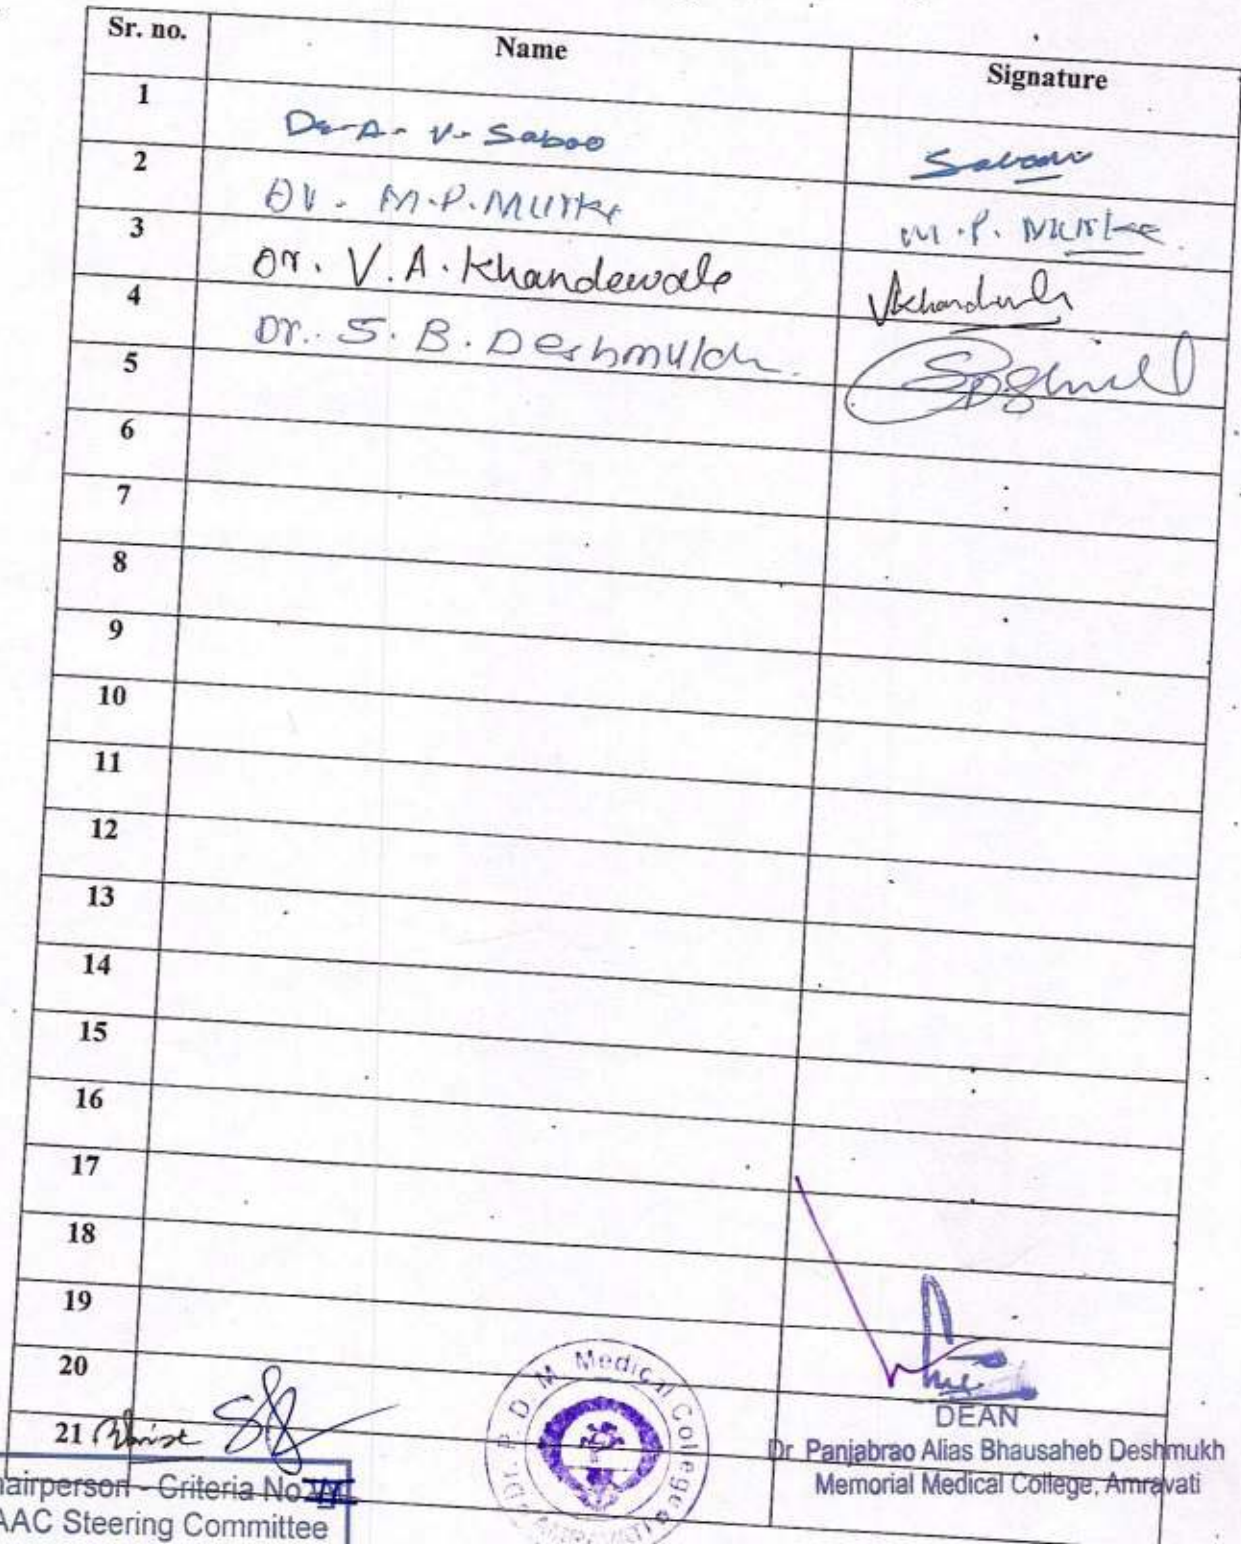 Sr. no. Name Signature
1 Dr. A. V. Saboo
2 Dr. M.P. Murke M.P. Murke
3 Dr. V. A. Khandewale
4 Dr. S. B. Deshmukh
5
6
7
8
9
10
11
12
13
14
15
16
17
18
19
20
21
hairperson - Criteria No
AAC Steering Committee
Dr. P. D. M. Medical College
AMRAVATI
DEAN
Dr. Panjabrao Alias Bhausaheb Deshmukh
Memorial Medical College, Amravati